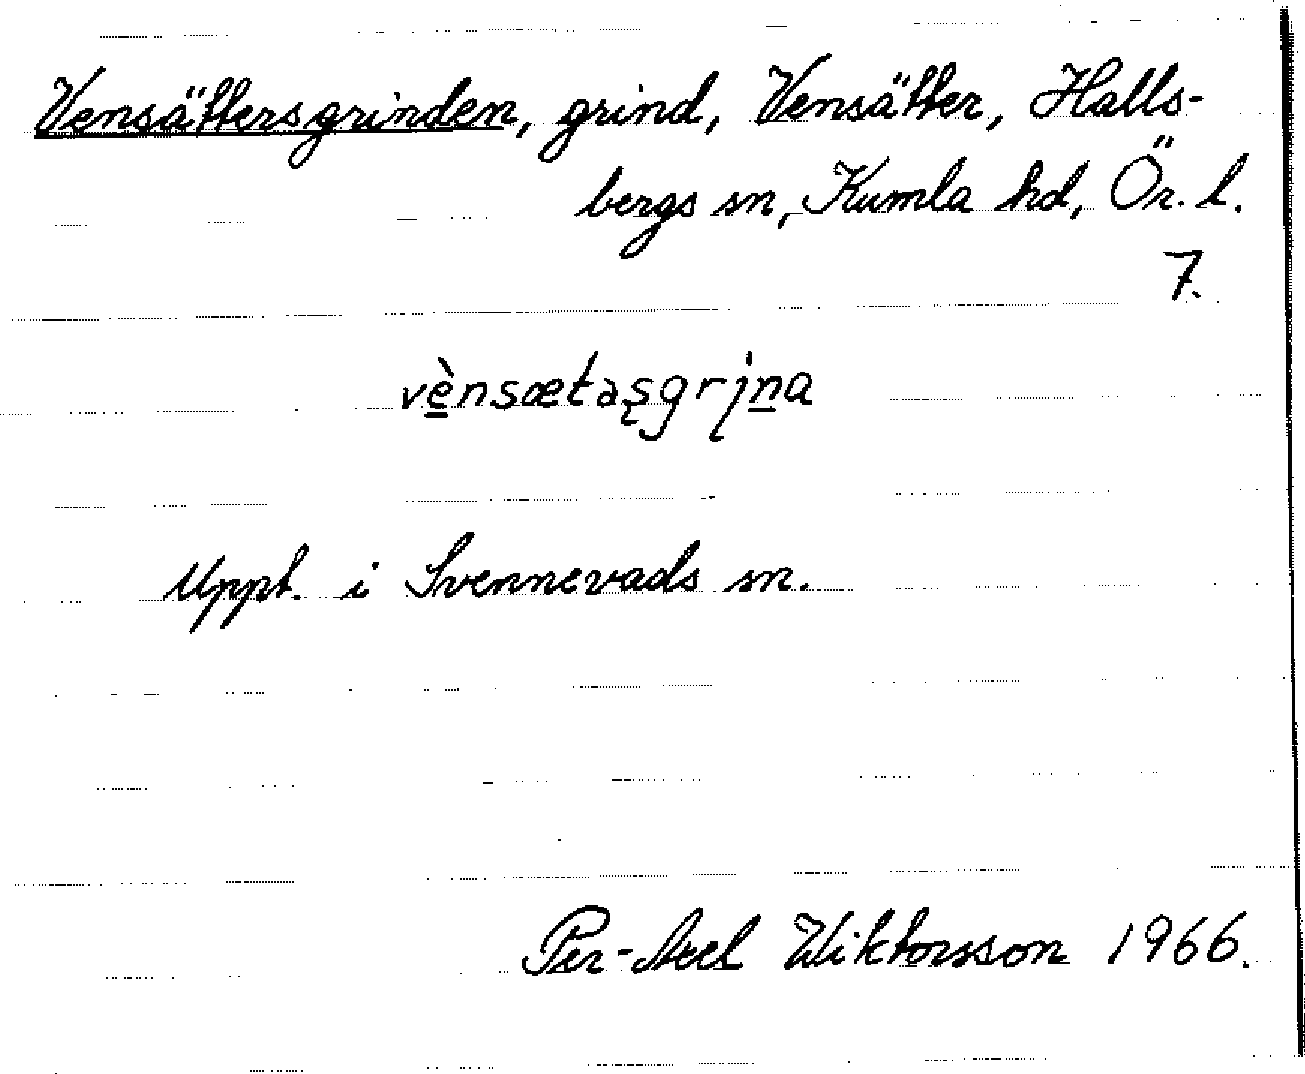 Vensättersgrinden, grind, Vensätter, Halls-
bergs sn, Kumla hd, Ör. l.
7.
vènsætaşgrįna
Uppt. i Svennevads sn.
Per-Axel Wiktorsson 1966.